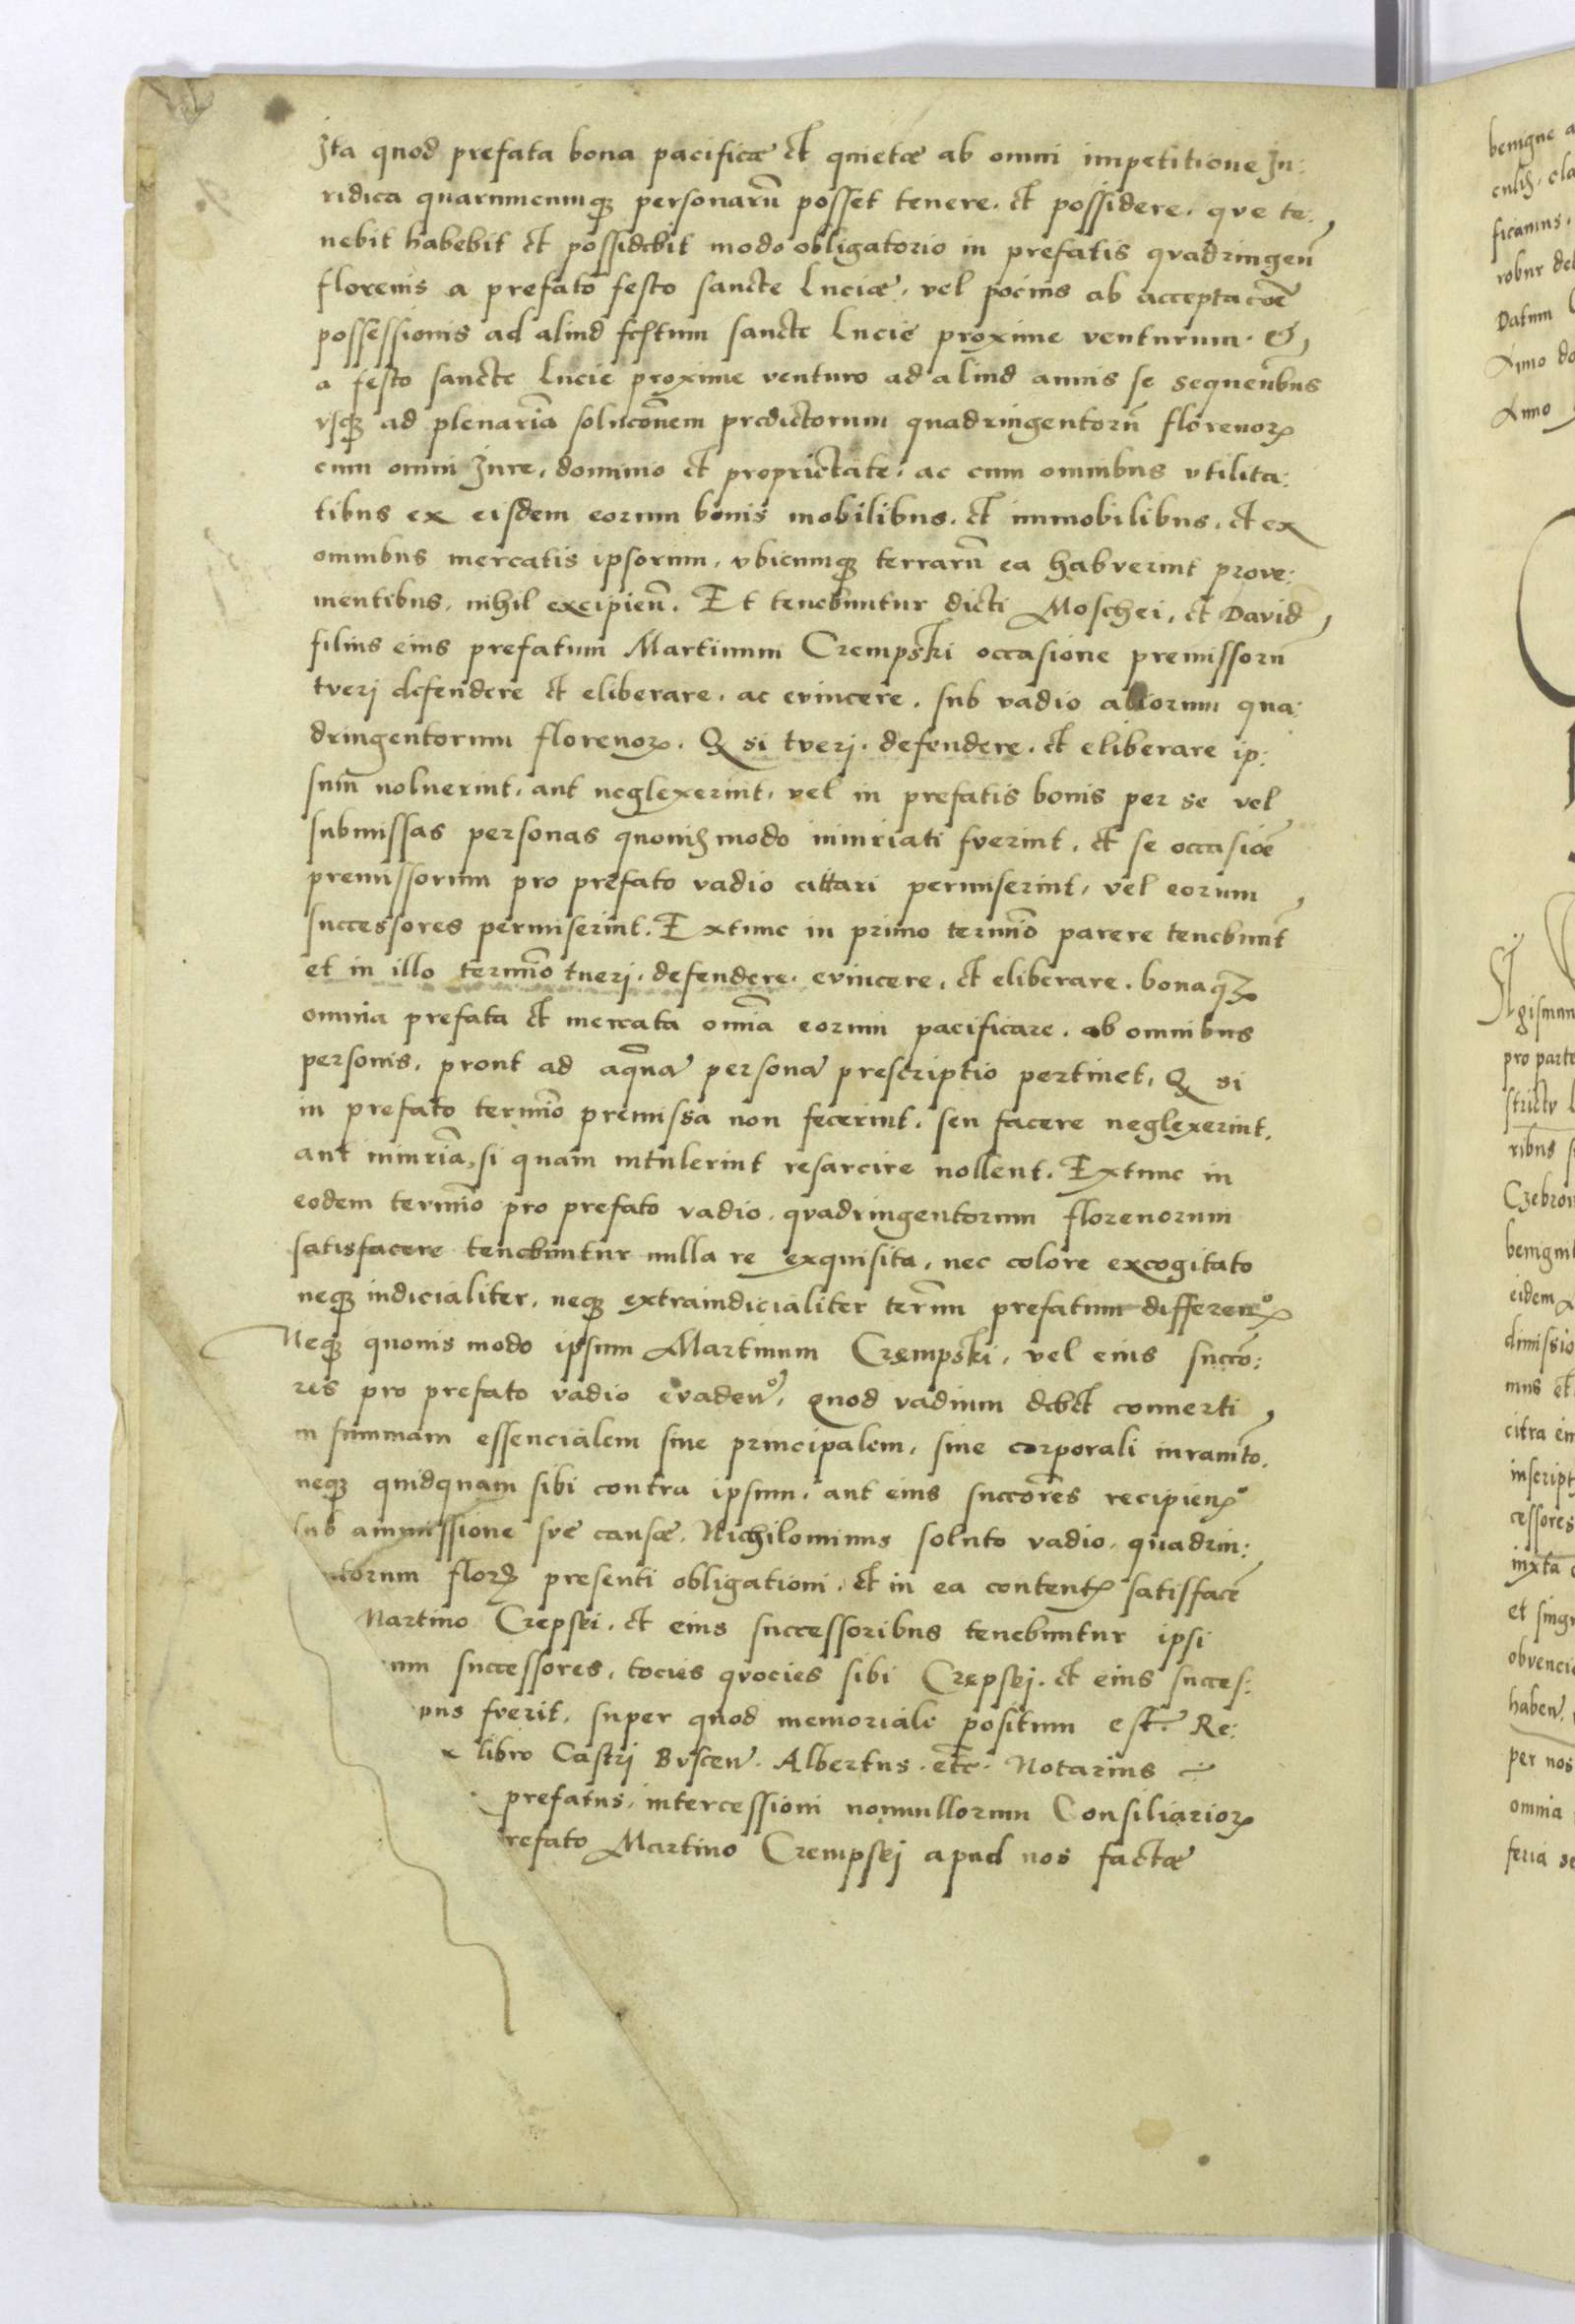 Ita quod prefata bona pacificæ et quietæ ab omni impetitione Iu:
ridica quarumcumq₃ personarū posset tenere. et possidere. que te,
nebit habebit et possidebit modo obligatorio in prefatis quadringeñ
florenis a prefato festo sancte Luciæ, vel pocius ab acceptacōe
possessionis ad aliud festum sancte Lucie proxime venturum. &,
a festo sancte Lucie proxime venturo ad aliud annis se sequeñbus
vsq₃ ad plenariā soluconēm predictorum quadringentorū florenoꝝ
cum omni Iure, dominio et proprietate. ac cum omnibus vtilita:
tibus ex eisdem eorum bonis mobilibus. et immobilibus. et ex
omnibus mercatis ipsorum, vbicumq₃ terrarū ea habuerint prove:
nientibus, nihil excipieñ. Et tenebuntur dicti Moschei, et David,
filius eius prefatum Martinum Crempski occasione premissorū
tueri defendere et eliberare, ac evincere, sub vadio aliorum qua:
dringentorum florenoꝝ. Q si tueri. defendere. et eliberare ip:
sum̄ noluerint, aut neglexerint, vel in prefatis bonis per se vel
submissas personas quouis modo iniuriati fuerint, et se occasiōe
premissorum pro prefato vadio cittari permiserint, vel eorum,
successores permiserint. Extunc in primo termīo parere tenebunt̄
et in illo termīo tueri. defendere. evincere, et eliberare. bonaq₃
omnia prefata et mercata omīa eorum pacificare. ab omnibus
personis, prout ad aquā persona prescriptio pertinet, Q si
in prefato termīo premissa non fecerint, seu facere neglexerint.
aut iniuriā, si quam intulerint resarcire nollent. Extunc in
eodem termīo pro prefato vadio. quadringentorum florenorum
satisfacere tenebuntur nulla re exquisita, nec colore excogitato
neq₃ iudicialiter, neq₃ extraiudicialiter term̄ prefatum differenᵒꝝ
Neq₃ quouis modo ipsum Martinum Crempski, vel eius succo:
res pro prefato vadio evadenᵒ, Quod vadium debet conuerti,
in summam essencialem siue principalem, sine corporali iuramt̄o.
neq₃ quidquam sibi contra ipsum, aut eius succorēs recipienᵒ
sub ammissione sue causæ. Nichilominus soluto vadio. quadrin:
torum florꝝ presenti obligationi. et in ea contentꝝ satisfacē
Martino Crepski. et eius successoribus tenebuntur ipsi
um successores, tocies quocies sibi Crepski. et eius succes:
pus fuerit, super quod memoriale positum est. Re:
x libro Castri Buscen. Albertus. etc. Notarius
prefatus, intercessioni nonnullorum Consiliarioꝝ
refato Martino Crempski apud nos factæ
benigne a
ficamus.
robur de
Datum
Anno do
Anno
gismun
pro parte
ribus s
Czebron
benignit
eidem
dimissio
mus et
citra em
inscript
cessores
iuxta
et sing
obvenci
haben.
per nos
omnia
feria se